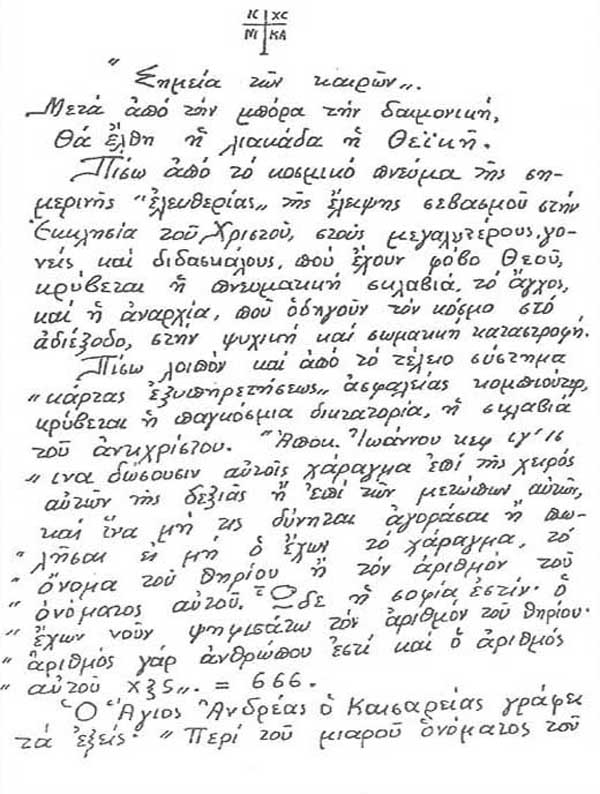 ΙC ΧC
ΝΙ ΚΑ
"Σημεία τῶν καιρῶν„.
Μετά ἀπό τήν μπόρα τήν δαιμονική,
Θά ἔλθη ἡ λιακάδα ἡ Θεϊκή.
Πίσω ἀπό τό κοσμικό πνεύμα τῆς ση-
μερινῆς "ἐλευθερίας„ τῆς ἔλειψης σεβασμοῦ στήν
Ἐκκλησία τοῦ Χριστοῦ, στούς μεγαλυτέρους, γο-
νεῖς καί διδασκάλους, πού ἔχουν φόβο Θεοῦ,
κρύβεται ἡ πνευματική σκλαβιά, τό ἄγχος,
καί ἡ ἀναρχία, πού ὁδηγοῦν τόν κόσμο στό
ἀδιέξοδο, στήν ψυχική καί σωματική καταστροφή.
Πίσω λοιπόν καί ἀπό τό τέλειο σύστημα
"κάρτας ἐξυπηρετήσεως„ ἀσφαλείας κομπιούτερ,
κρύβεται ἡ παγκόσμια δικτατορία, ἡ σκλαβιά
τοῦ ἀντιχρίστου. "Ἀποκ. Ἰωάννου κεφ ιγ' 16
"ινα δώσουσιν αὐτοῖς χάραγμα ἐπί τῆς χειρός
αὐτῶν τῆς δεξιᾶς ἤ ἐπί τῶν μετώπων αὐτῶν,
καί ἵνα μή τις δύνηται ἀγοράσαι ἤ πω-
"λῆσαι εἰ μή ὁ ἔχων τό χάραγμα, τό
"ὄνομα τοῦ θηρίου ἤ τόν ἀριθμόν τοῦ
"ὀνόματος αὐτοῦ. Ὧδε ἡ σοφία ἐστίν· ὁ
"ἔχων νοῦν ψηφισάτω τόν ἀριθμόν τοῦ θηρίου·
"ἀριθμός γάρ ἀνθρώπου ἐστί καί ὁ ἀριθμός
"αὐτοῦ χξς„. = 666.
Ὁ Ἅγιος Ἀνδρέας ὁ Καισαρείας γράφει
τά ἑξεῖς· "Περί τοῦ μιαροῦ ὀνόματος τοῦ